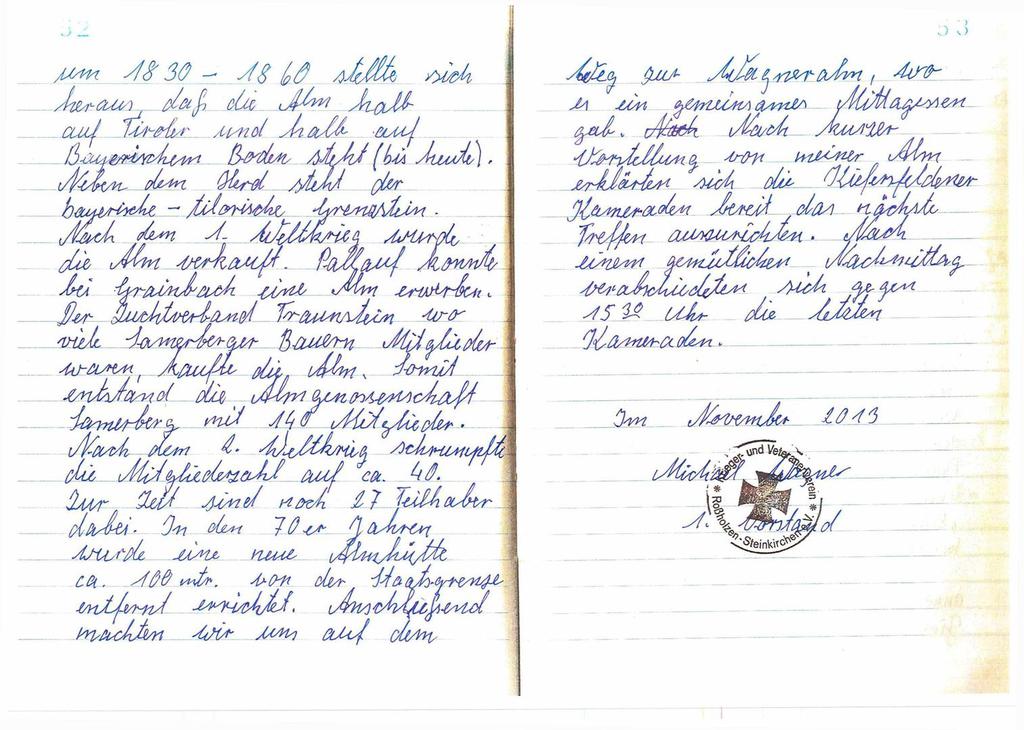 52
um 1830 - 1860 stellte sich
heraus, daß die Alm halb
auf Tiroler und halb auf
Bayerischem Boden steht (bis heute).
Neben dem Herd steht der
bayerische - tilorische Grenzstein.
Nach dem 1. Weltkrieg wurde
die Alm verkauft. Pallauf konnte
bei Grainbach eine Alm erwerben.
Der Zuchtverband Traunstein wo
viele Samerberger Bauern Mitglieder
waren, kaufte die Alm. Somit
entstand die Almgenossenschaft
Samerberg mit 140 Mitglieder.
Nach dem 2. Weltkrieg schrumpfte
die Mitgliederzahl auf ca. 40.
Zur Zeit sind noch 27 Teilhaber
dabei. In den 70er Jahren
wurde eine neue Almhütte
ca. 100 mtr. von der Staatsgrenze
entfernt errichtet. Anschließend
machten wir uns auf dem
53
Weg zur Wagneralm, wo
es ein gemeinsames Mittagessen
gab. Nach Nach kurzer
Vorstellung von meiner Alm
erklärten sich die Kiefersfeldener
Kameraden bereit das nächste
Treffen auszurichten. Nach
einem gemütlichen Nachmittag
verabschiedeten sich gegen
15 30 Uhr die letzten
Kameraden.
Im November 2013
Michael Wagner
1. Vorstand
* Krieger- und Veteranenverein *
Roßholzen-Steinkirchen e.V.